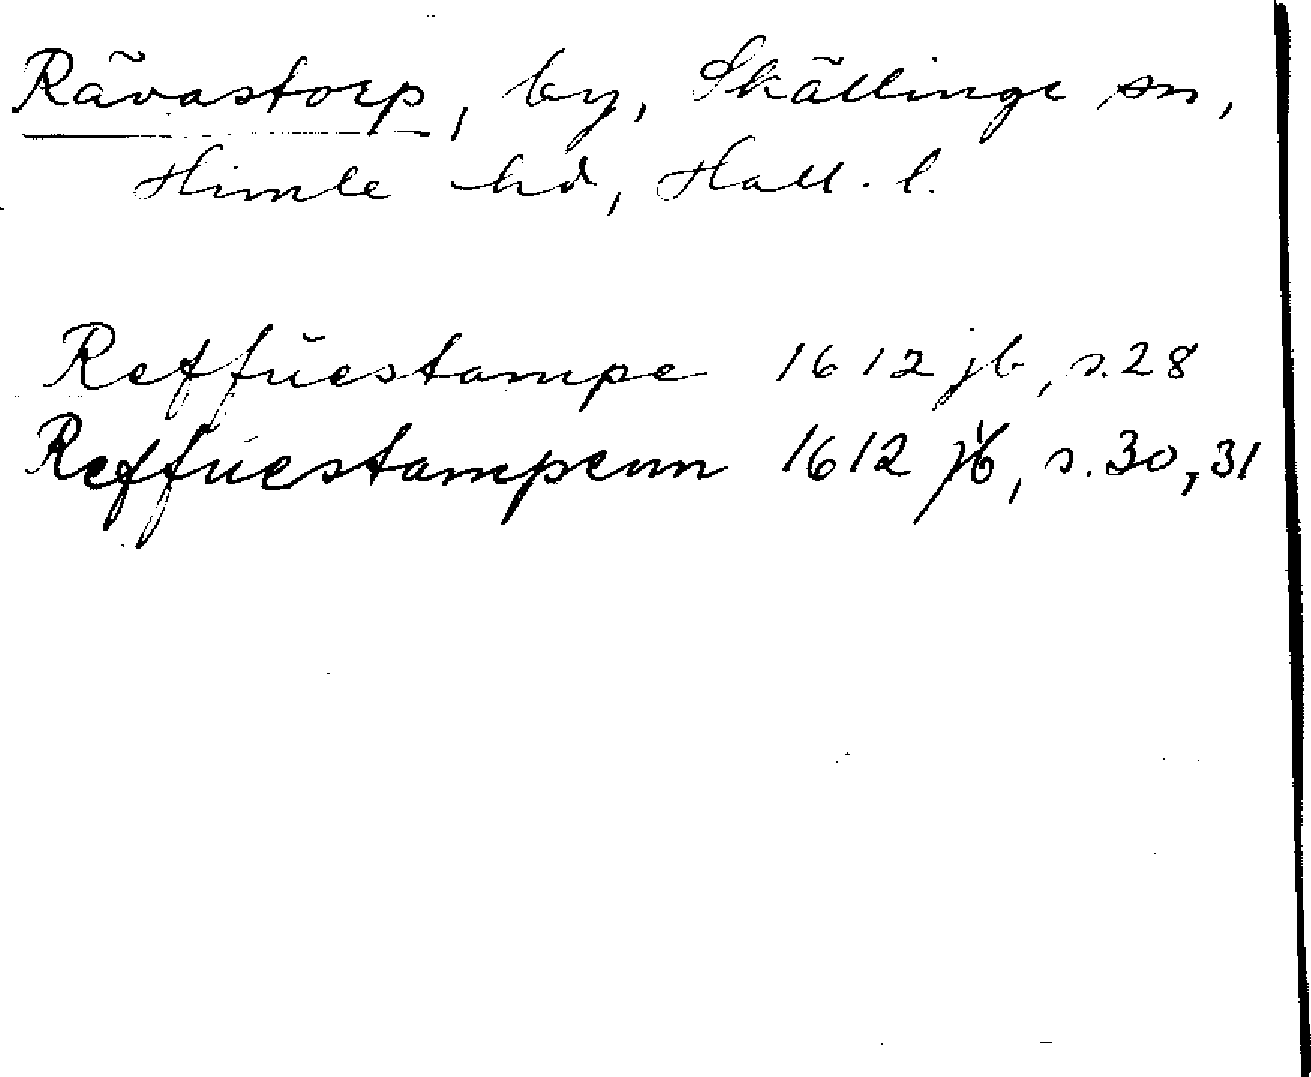 Rävastorp, by, Skällinge sn,
Himle hd, Hall. l.
Reffuestampe 1612 jb, s. 28
Reffuestampenn 1612 jb, s. 30, 31